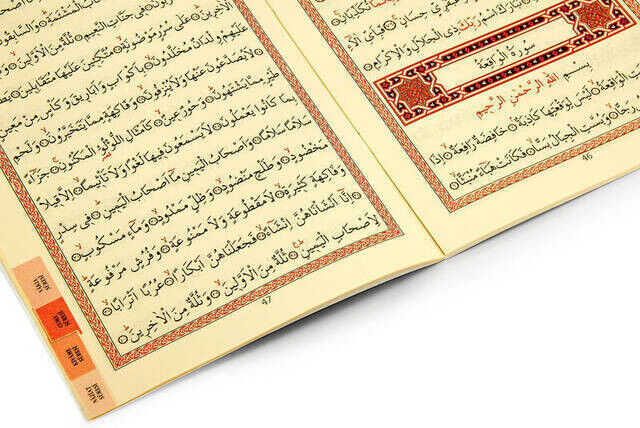 حِسَانٍ فَبِاَىِّ
تَبَارَكَ اسْمُ رَبِّكَ ذِى الْجَلَالِ وَالْاِكْرَامِ
سورة الواقعة
بِسْمِ اللّٰهِ الرَّحْمٰنِ الرَّحٖيمِ
الْوَاقِعَةُ لَيْسَ لِوَقْعَتِهَا كَاذِبَةٌ خَافِضَةٌ رَافِعَةٌ اِذَا
وَبُسَّتِ الْجِبَالُ بَسًّا فَكَانَتْ هَبَٓاءً مُنْبَثًّا
46
الْمَشْئَمَةِ وَالسَّابِقُو
فٖى جَنَّاتِ النَّعٖيمِ ثُلَّةٌ مِنَ الْاَوَّلٖينَ
عَلٰى سُرُرٍ مَوْضُونَةٍ مُتَّكِـٖٔينَ عَلَيْهَا مُتَقَابِلٖينَ
عَلَيْهِمْ وِلْدَانٌ مُخَلَّدُونَ بِاَكْوَابٍ وَاَبَارٖيقَ وَكَاْسٍ مِنْ مَعٖينٍ
لَا يُصَدَّعُونَ عَنْهَا وَلَا يُنْزِفُونَ وَفَاكِهَةٍ مِمَّا يَتَخَيَّرُونَ وَلَحْمِ
طَيْرٍ مِمَّا يَشْتَهُونَ وَحُورٌ عٖينٌ كَاَمْثَالِ اللُّؤْلُؤِ الْمَكْنُونِ جَزَٓاءً
بِمَا كَانُوا يَعْمَلُونَ لَا يَسْمَعُونَ فٖيهَا لَغْوًا وَلَا تَاْثٖيمًا اِلَّا قٖيلًا
سَلَامًا سَلَامًا وَاَصْحَابُ الْيَمٖينِ مَٓا اَصْحَابُ الْيَمٖينِ فٖى سِدْرٍ
مَخْضُودٍ وَطَلْحٍ مَنْضُودٍ وَظِلٍّ مَمْدُودٍ وَمَٓاءٍ مَسْكُوبٍ
وَفَاكِهَةٍ كَثٖيرَةٍ لَا مَقْطُوعَةٍ وَلَا مَمْنُوعَةٍ وَفُرُشٍ مَرْفُوعَةٍ
اِنَّٓا اَنْشَاْنَاهُنَّ اِنْشَٓاءً فَجَعَلْنَاهُنَّ اَبْكَارًا عُرُبًا اَتْرَابًا
لِاَصْحَابِ الْيَمٖينِ ثُلَّةٌ مِنَ الْاَوَّلٖينَ وَثُلَّةٌ مِنَ الْاٰخِرٖينَ
47
SÛRESİ
CUMA SÛRESİ
KIYAME SÛRESİ
NAZİAT SÛRESİ